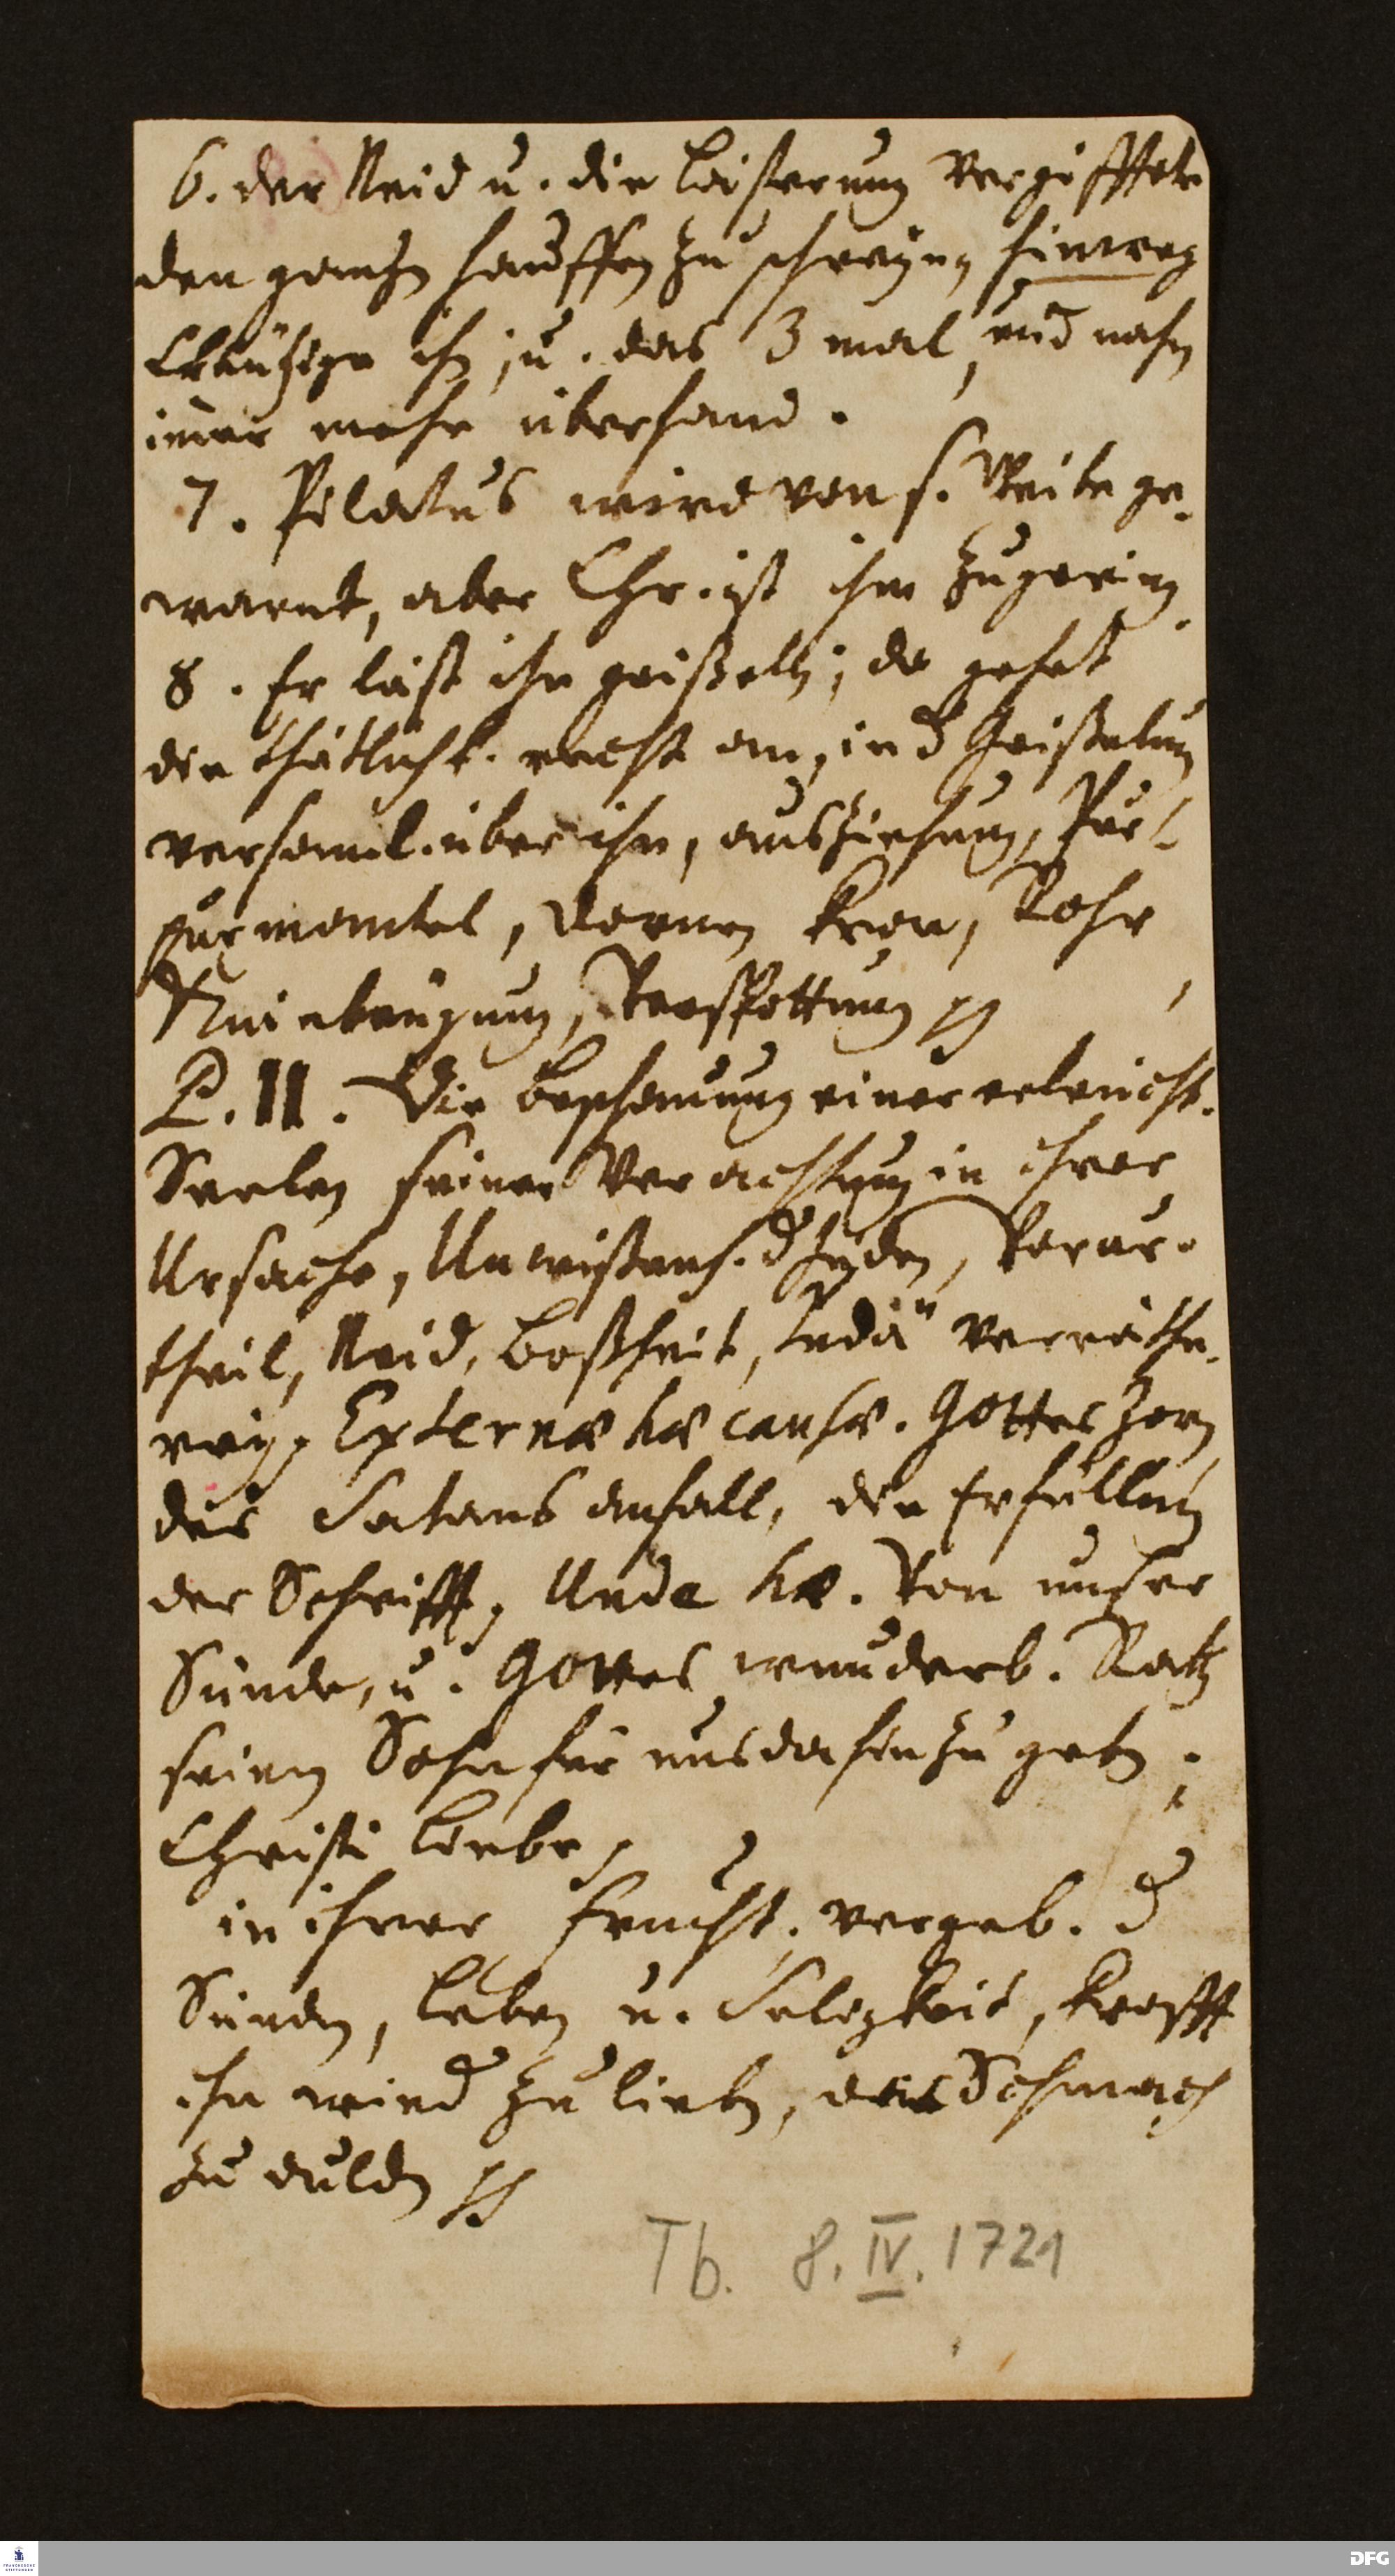 6. der Neid u. die Lästerung vergifftete
den gantzen hauffen zu schreyen, hinweg
Creutzige ihn; u. das 3 mal, und nahm
immer mehr überhand.
7. Pilatus wird von s. Weibe ge-
warnt, aber Chr. ist ihm zu gering.
8. Er läst ihn geißeln; da gehet
die thätlichk. recht an, in d Geißelung
versaml. über ihn, ausziehung, Pur-
pur mantel, dornen Kron, Rohr,
Kniebeugung, Verspottung pp
P. II. Die beschauung einer erleucht.
Seelen seiner Verachtung in ihrer
Ursache, Unwißenh. d Jüden, Vorur-
theil, Neid, boßheit, Judä verräthe-
rey. Externae hae causae. Gottes Zorn
des Satans anfall, die Erfüllung
der Schrifft, Unde hae. Von unser
Sünde, u. Gottes wunderb. Rath
seinen Sohn für uns dahin zu geben;
Christi Liebe,
in ihrer Frucht. vergeb. d
Sünden, Leben u. Seligkeit, Krafft
ihn wied zu lieben, Schmach
zu dulden pp
Tb. 8. IV. 1721
FRANCKESCHE
STIFTUNGEN
DFG